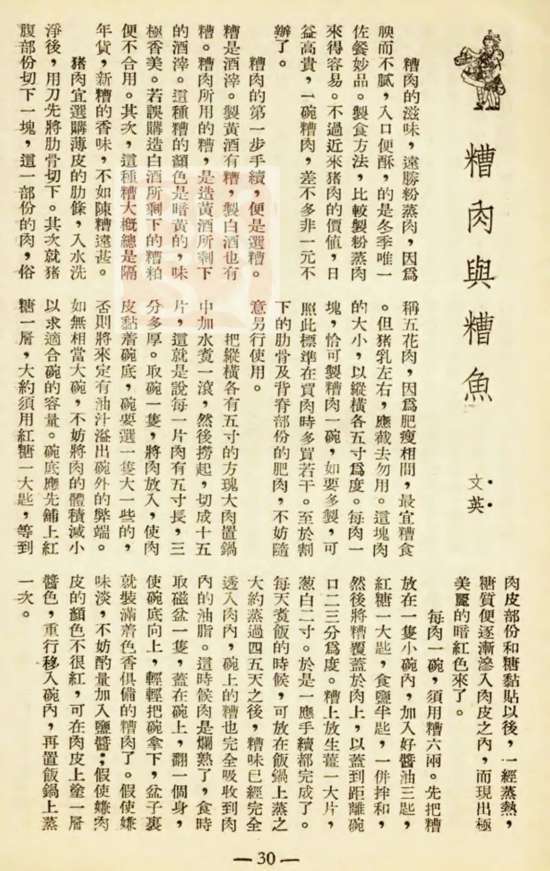 糟肉與糟魚
文英
糟肉的滋味，遠勝粉蒸肉，因爲
腴而不膩，入口便酥，的是冬季唯一
佐餐妙品。製食方法，比較製粉蒸肉
來得容易。不過近來猪肉的價値，日
益高貴，一碗糟肉，差不多非一元不
辦了。
糟肉的第一步手續，便是選糟。
糟是酒滓。製黃酒有糟，製白酒也有
糟。糟肉所用的糟，是造黃酒所剩下
的酒滓。這種糟的顏色是暗黃的，味
極香美。若誤購造白酒所剩下的糟粕
便不合用。其次，這種糟大槪總是隔
年貨，新糟的香味，不如陳糟遠甚。
猪肉宜選購薄皮的肋條，入水洗
淨後，用刀先將肋骨切下。其次就猪
腹部份切下一塊，這一部份的肉，俗
稱五花肉，因爲肥瘦相間，最宜糟食
。但猪乳左右，應截去勿用。這塊肉
的大小，以縱橫各五寸爲度。每肉一
塊，恰可製糟肉一碗，如要多製，可
照此標準在買肉時多買若干。至於割
下的肋骨及背脊部份的肥肉，不妨隨
意另行使用。
把縱橫各有五寸的方塊大肉置鍋
中加水煑一滾，然後撈起，切成十五
片，這就是說每一片肉有五寸長，三
分多厚。取碗一隻，將肉放入，使肉
皮黏着碗底，碗要選一隻大一些的，
否則將來定有油汁溢出碗外的弊端。
如無相當大碗，不妨將肉的體積減小
以求適合碗的容量。碗底應先鋪上紅
糖一層，大約須用紅糖一大匙，等到
肉皮部份和糖黏貼以後，一經蒸熱，
糖質便逐漸滲入肉皮之內，而現出極
美麗的暗紅色來了。
每肉一碗，須用糟六兩。先把糟
放在一隻小碗內，加入好醬油三匙，
紅糖一大匙，食鹽半匙，一併拌和，
然後將糟覆蓋於肉上，以蓋到距離碗
口二三分爲度。糟上放生薑一大片，
葱白二寸。於是一應手續都完成了。
每天煑飯的時候，可放在飯鍋上蒸之
大約蒸過四五天之後，糟味已經完全
透入肉內，碗上的糟也完全吸收到肉
內的油脂。這時候肉是爛熟了，食時
取磁盆一隻，蓋在碗上，翻一個身，
使碗底向上，輕輕把碗拿下，盆子裏
就裝滿着色香俱備的糟肉了。假使嫌
味淡，不妨酌量加入鹽醬；假使嫌肉
皮的顏色不很紅，可在肉皮上塗一層
醬色，重行移入碗內，再置飯鍋上蒸
一次。
—30—